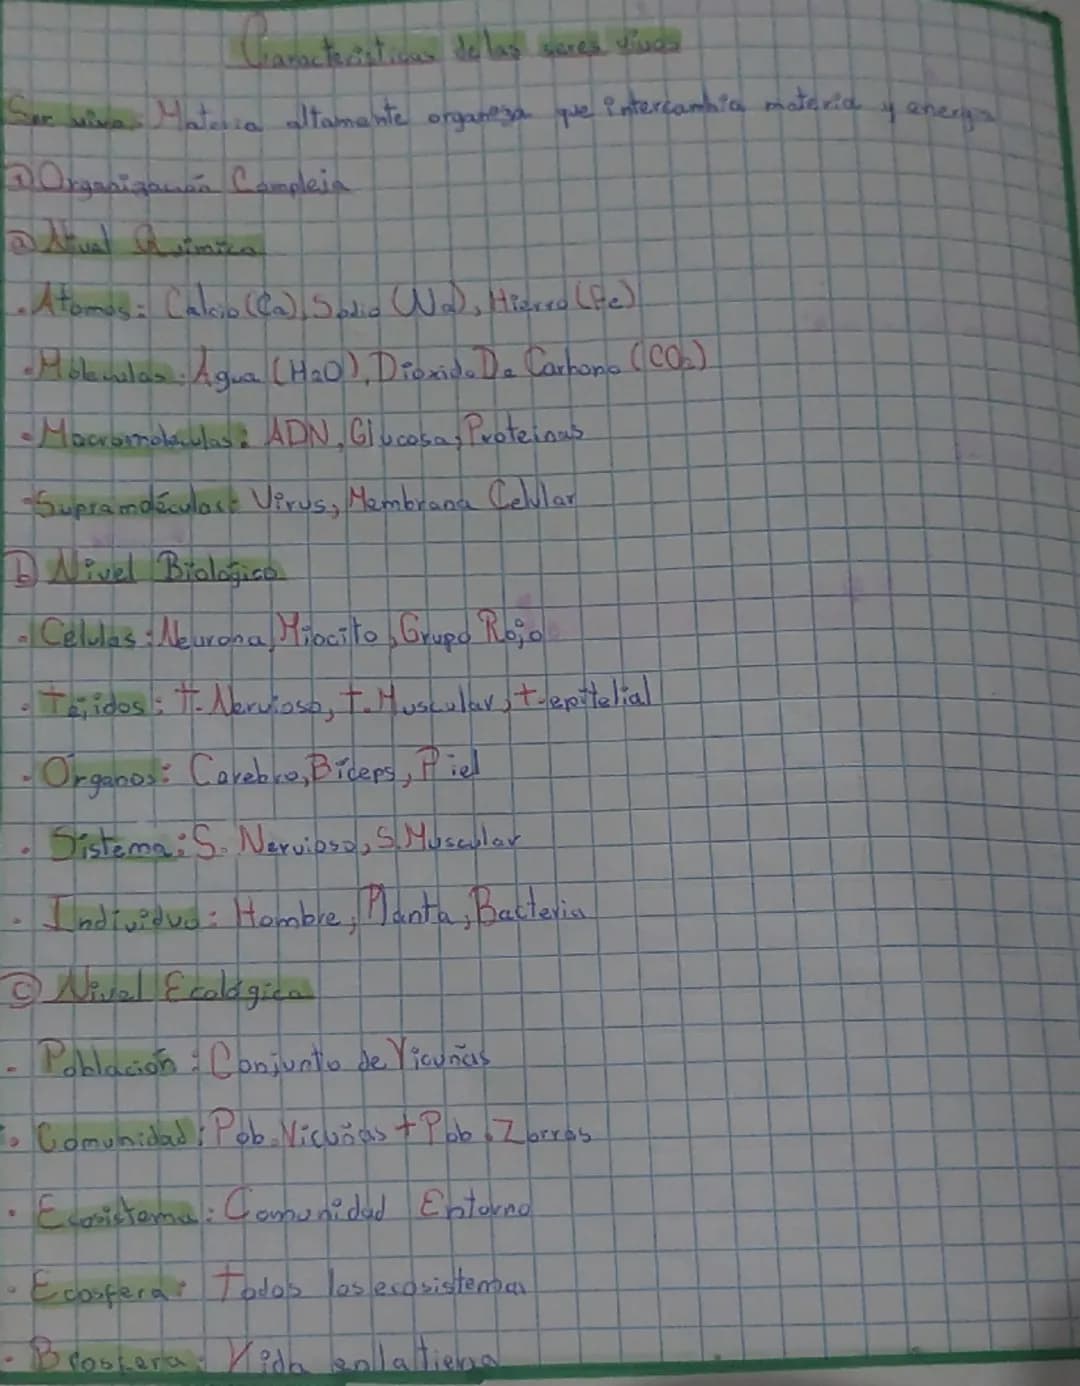 Caracteristicas de las seres vivos
Ser vivo: Materia altamente organeza que intercambia materia y energia
① Organización Compleja
ⓐ Nivel Quimico
• Atomos: Calcio (Ca), Sodio (Na), Hierro (Fe)
• Moleculas: Agua (H2O), Dióxido De Carbono (CO2)
• Macromoleculas: ADN, Glucosa, Proteinas
• Supramoléculas: Virus, Membrana Celular
ⓑ Nivel Biológico
• Células: Neurona, Miocito, Grupo Rojo
• Tejidos: t. Nervioso, t. Muscular, t. epitelial
• Órganos: Cerebro, Bíceps, Piel
• Sistema: S. Nervioso, S. Muscular
• Individuo: Hombre, Planta, Bacteria
ⓒ Nivel Ecológico
• Población: Conjunto de Vicuñas
• Comunidad: Pob. Vicuñas + Pob. Zorros
• Ecosistema: Comunidad Entorno
• Ecosfera: Todos los ecosistemas
• Biosfera: Vida en la tierra